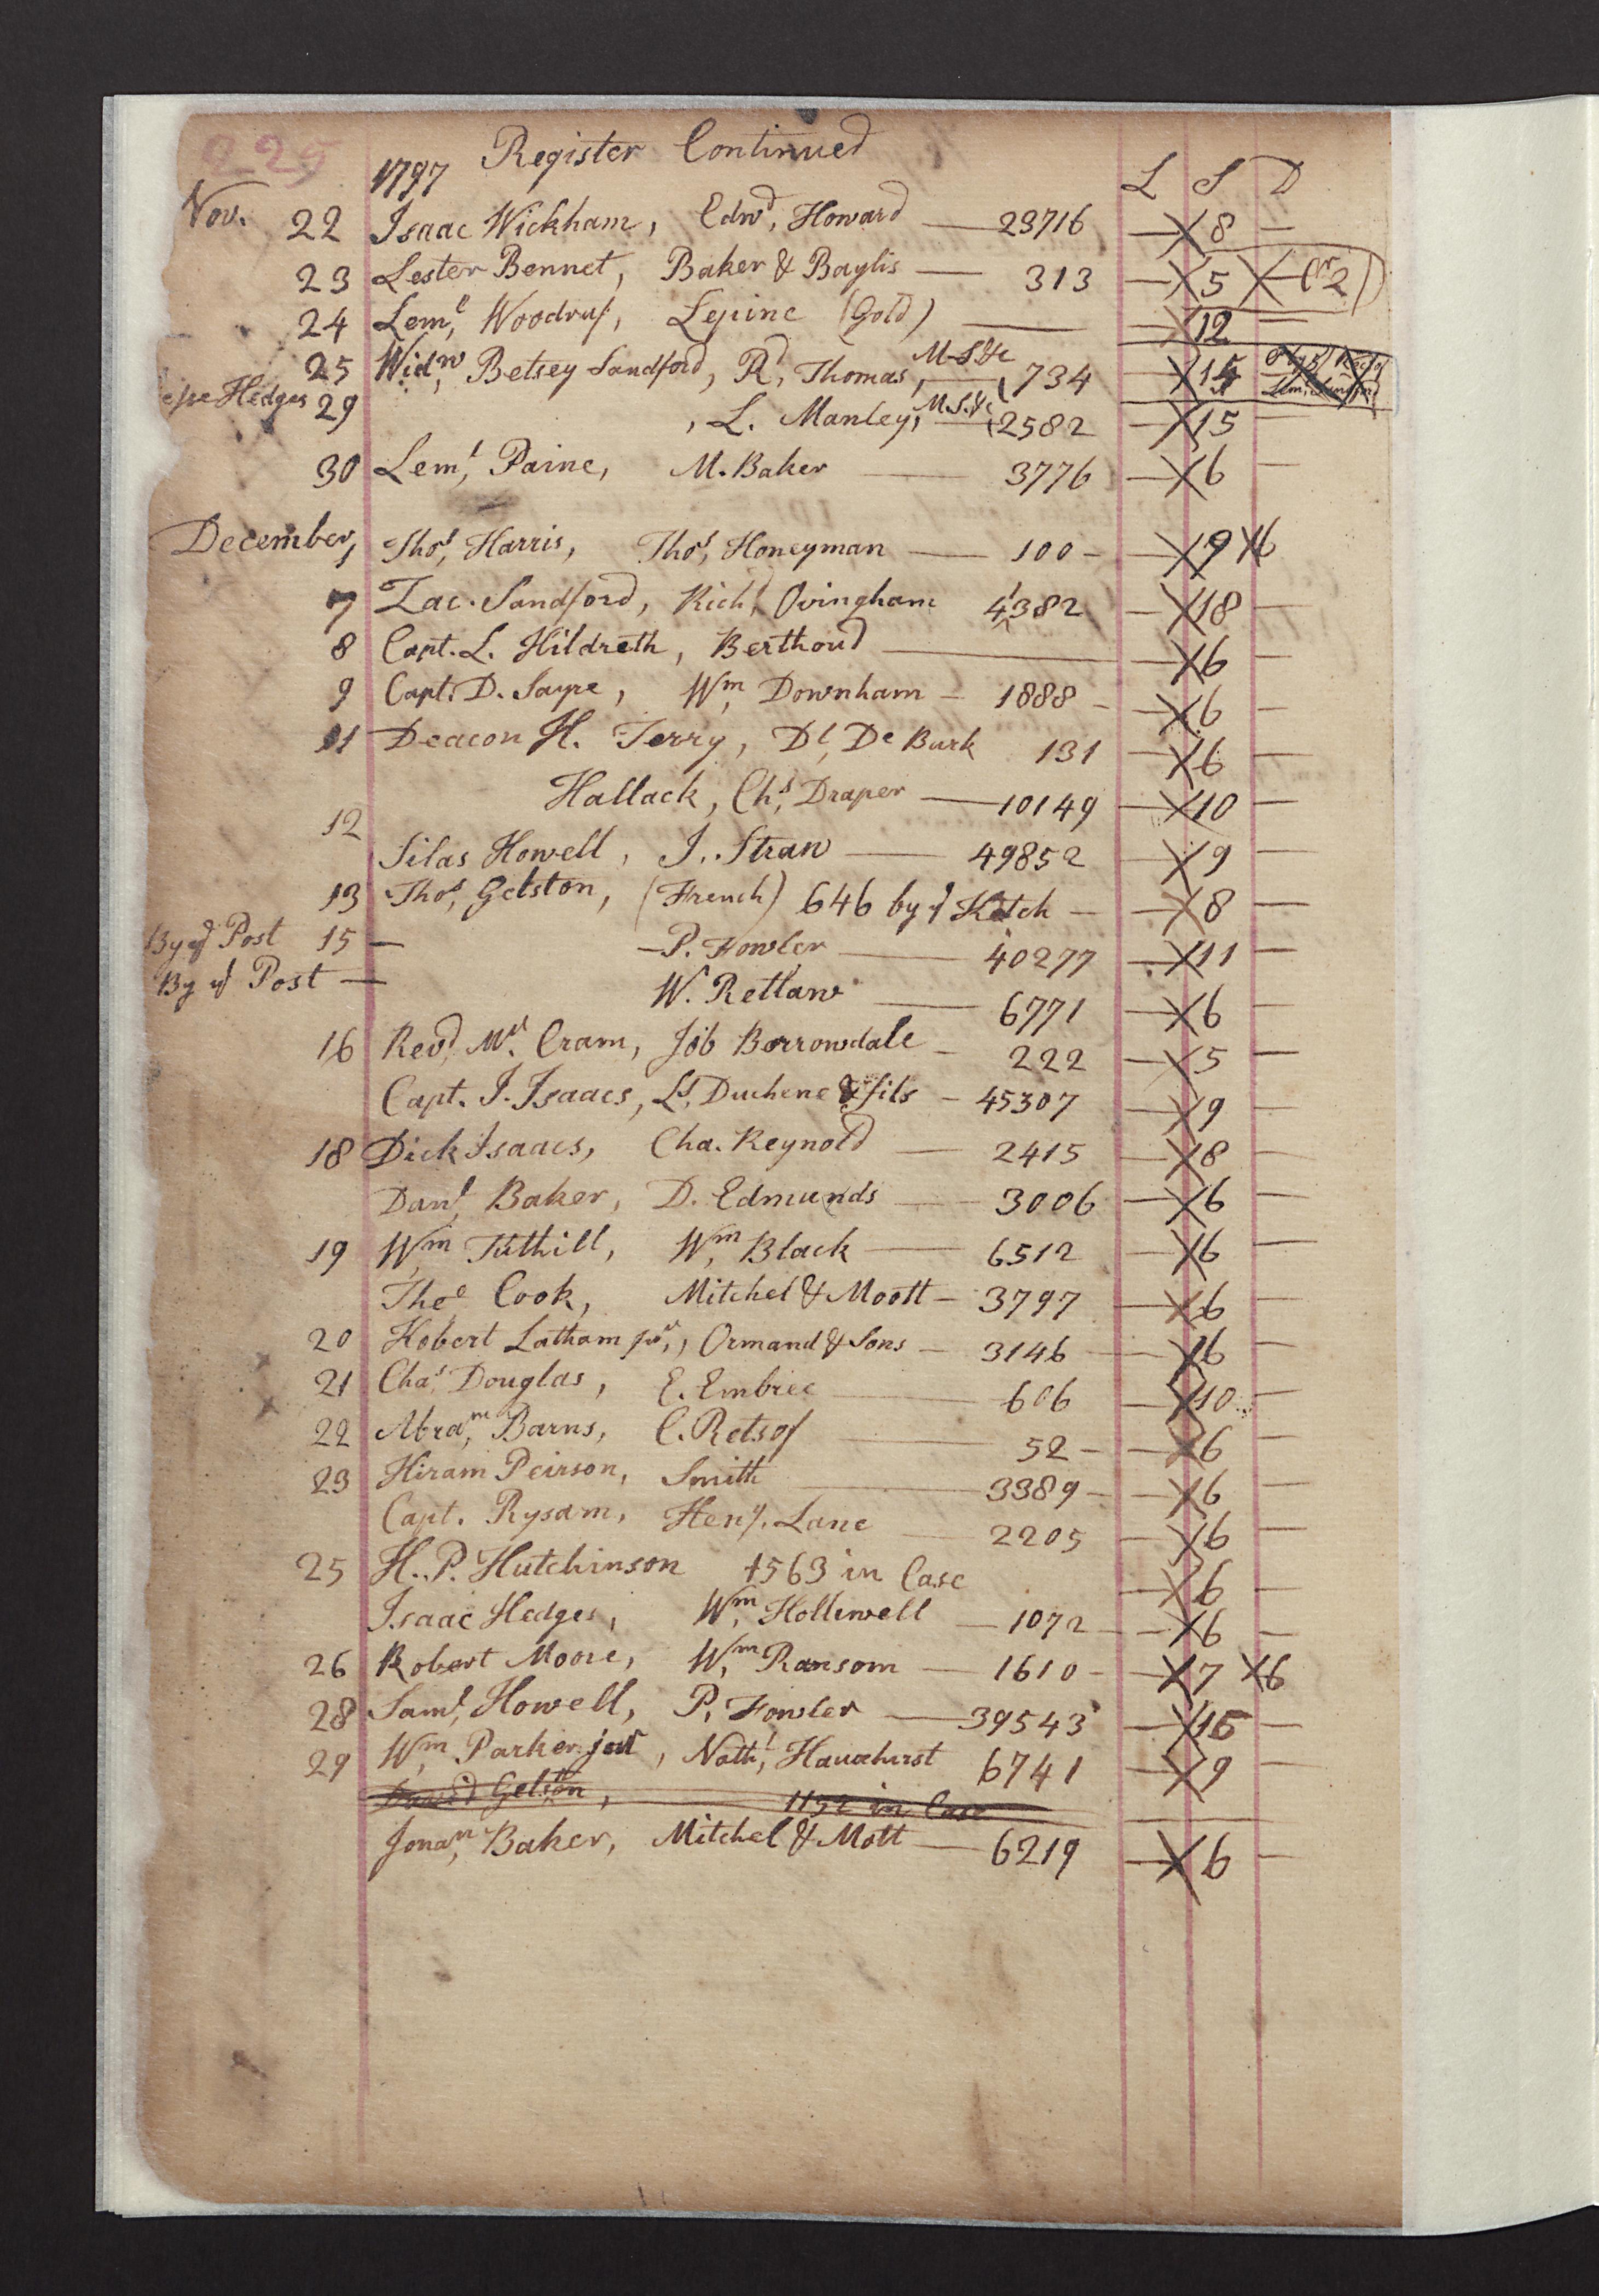 225
1797 Register Continued
L S D
Nov. 22 Isaac Wickham, Edwd, Howard — 23716 — X 8 —
23 Lester Bennet, Baker & Baylis — 313 — X 5 X — Cr 2 D
24 Leml, Woodruf, Lepine (Gold) — — X 12 —
25 Widw, Betsey Sandford, Rd, Thomas, M-S &c 734 — X 15
Hedges 29 , L. Manley, M.S. &c 2582 — X 15 —
30 Leml, Paine, M. Baker — 3776 — X 6 —
December, 1 Thos, Harris, Thos, Honeyman — 100 — — X 9 X 6
7 Zac. Sandford, Richd, Ovingham 4382 — X 18 —
8 Capt. L. Hildreth, Berthoud — — X 6 —
9 Capt. D. Sayre, Wm, Downham — 1888 — — X 6 —
11 Deacon H. Terry, Dl, De Burk 131 — X 6 —
Hallack, Chs, Draper — 10149 — X 10 —
12
Silas Howell, J. Straw — 49852 — X 9 —
13 Thos, Gelston, (French) 646 by ye Ketch — — X 8 —
By ye Post 15 — — P. Fowler — 40277 — X 11 —
By ye Post — W. Retlaw — 6771 — X 6 —
16 Revd, Mr. Cram, Job Borrowdale — 222 — X 5 —
Capt. J. Isaacs, Ls, Duchene & fils — 45307 — X 9 —
18 Dick Isaacs, Cha. Reynold — 2415 — X 8 —
Danl, Baker, D. Edmunds — 3006 — X 6 —
19 Wm, Tuthill, Wm, Black — 6512 — X 6 —
Thos Cook, Mitchel & Moott — 3797 — X 6 —
20 Hobert Latham jur,, Ormand & Sons — 3146 — X 6 —
21 Chas, Douglas, E. Embree — 606 — X 10 —
22 Abram, Barns, C. Retsof — 52 — — X 6 —
23 Hiram Peirson, Smith — 3389 — — X 6 —
Capt. Rysam, Heny. Lane — 2205 — X 6 —
25 H. P. Hutchinson +563 in Case — X 6 —
Isaac Hedges, Wm, Holliwell — 1072 — — X 6 —
26 Robert Moore, Wm, Ransom — 1610 — — X 7 X 6
28 Saml, Howell, P. Fowler — 39543 — X 15 —
29 Wm, Parker jur, Nathl, Hauxhurst 6741 — X 9 —
David Gelston, 1152 in Case
Jonan, Baker, Mitchel & Mott — 6219 — X 6 —